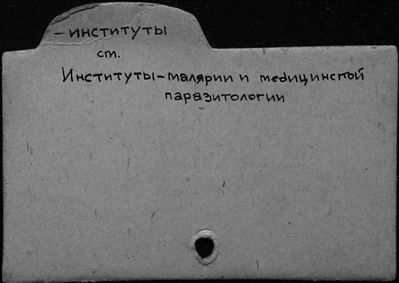 – институты
см.
Институты – малярии и медицинской
паразитологии